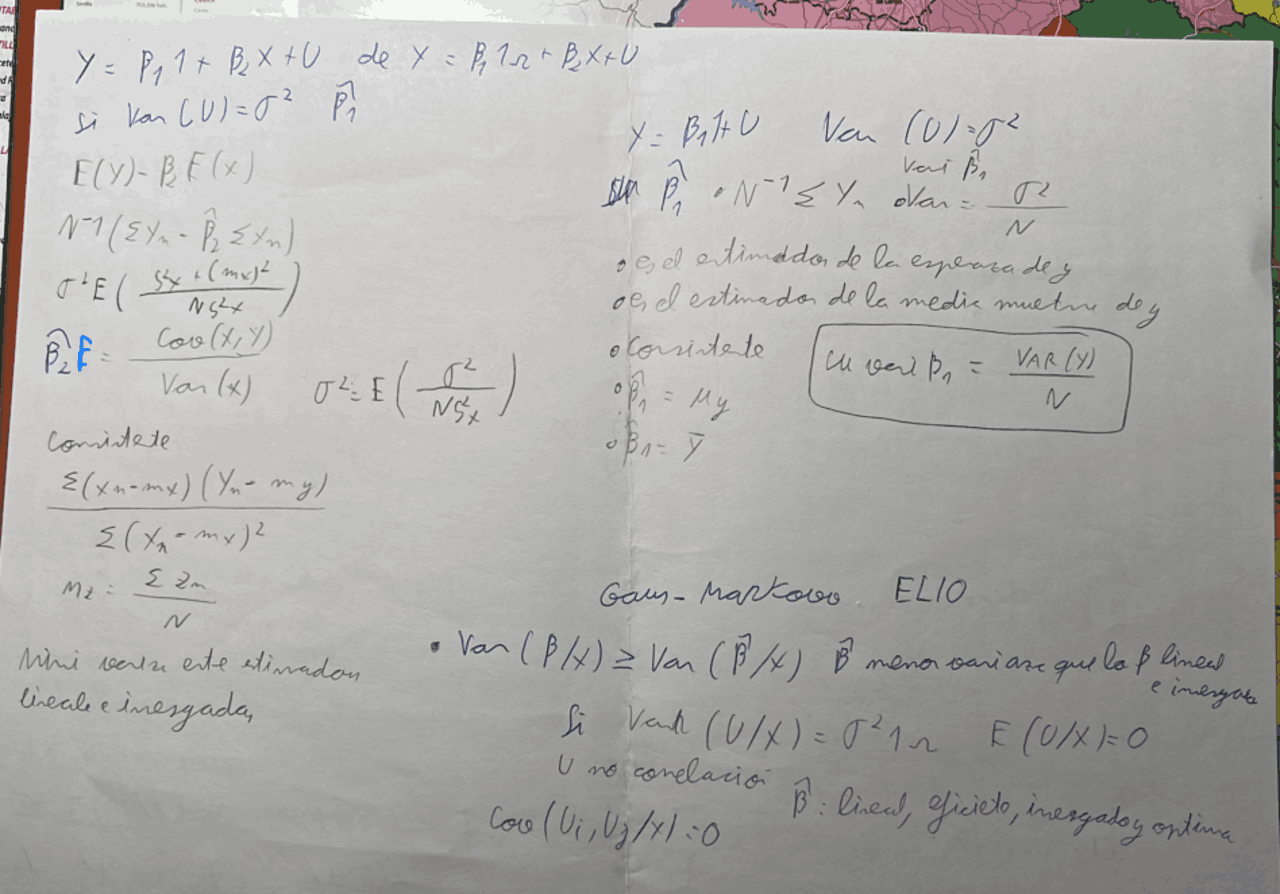 Y = β₁ 1 + β₂ X + U de Y = β₁ 1Ω + β₂ X + U
Si Var (U) = σ² β̂₁
E(Y) - β₂ E(X)
N⁻¹ (Σ Yn - β̂₂ Σ Xn)
σ² E ( S²x + (mx)² / N S²x )
β̂₂ E = Cov (X, Y) / Var (X)
σ² = E ( σ² / N S²x )
Consistete
Σ (xn - mx) (Yn - my) / Σ (Xn - mx)²
mz = Σ Zn / N
este estimador
lineale e insesgada,
Y = β₁ 1 + U Var (U) = σ²
vari β̂₁
β̂₁ • N⁻¹ Σ Yn • Var = σ² / N
• es el estimador de la esperaza de y
• es el estimador de la media muetra de y
• Consistente
• β̂₁ = μy
• β̂₁ = Ȳ
cu vari β₁ = VAR (Y) / N
Gaus - Markovo ELIO
• Var (β/X) ≥ Var (β̂/X) β̂ menor variaze que la β lineal
e insesgada
Si Var (U/X) = σ² 1Ω E (U/X) = 0
U no correlacioi
Cov (Ui, Uj/X) = 0
β̂ : lineal, eficiete, insesgado y optima